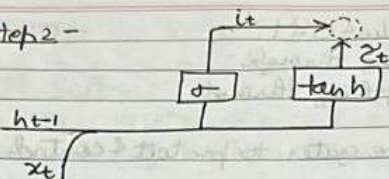 Step 2 -
it
c̃t
σ
tanh
ht-1
xt